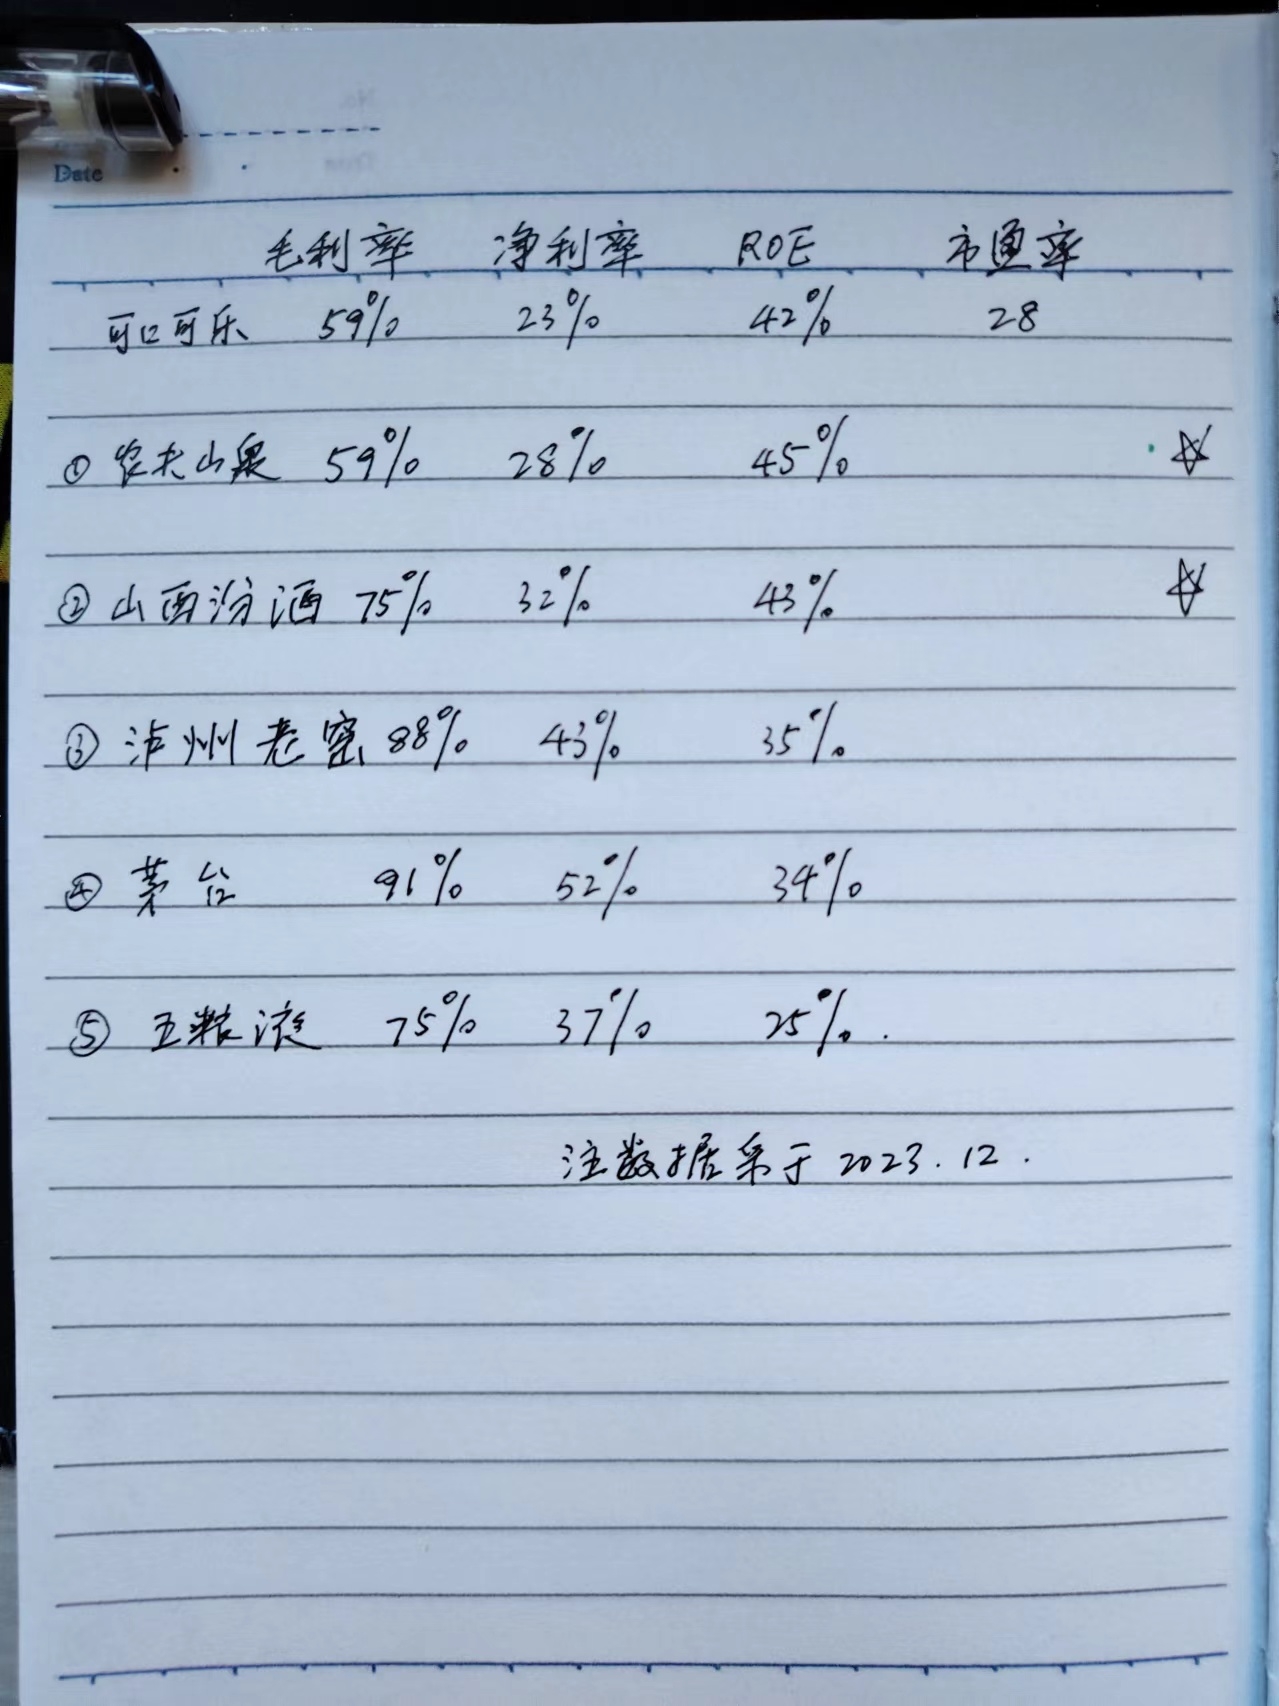 Date
毛利率 净利率 ROE 市盈率
可口可乐 59% 23% 42% 28
① 农夫山泉 59% 28% 45% ☆
② 山西汾酒 75% 32% 43% ☆
③ 泸州老窖 88% 43% 35%
④ 茅台 91% 52% 34%
⑤ 五粮液 75% 37% 25%.
注数据采于 2023.12.